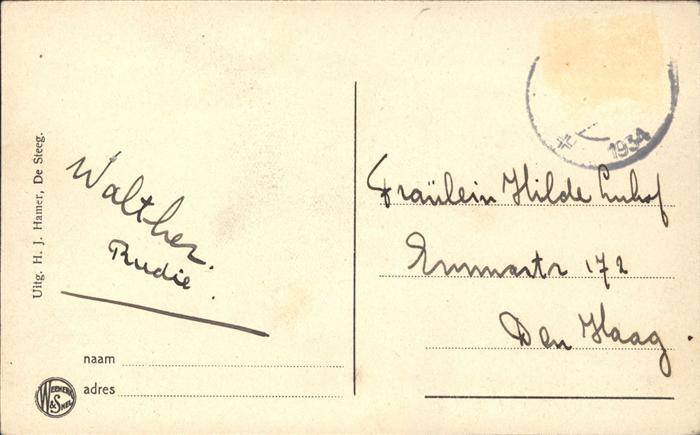 Uitg. H. J. Hamer, De Steeg.
Walther.
Rudie.
naam
adres
WEENENK & SNEL
1934
Fraülein Hilde
Emmastr 172
Den Haag.